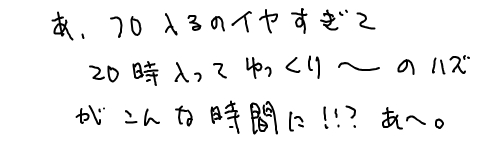 あ、フロ入るのイヤすぎて
20時入ってゆっくり〜のハズ
がこんな時間に!!?あへ。